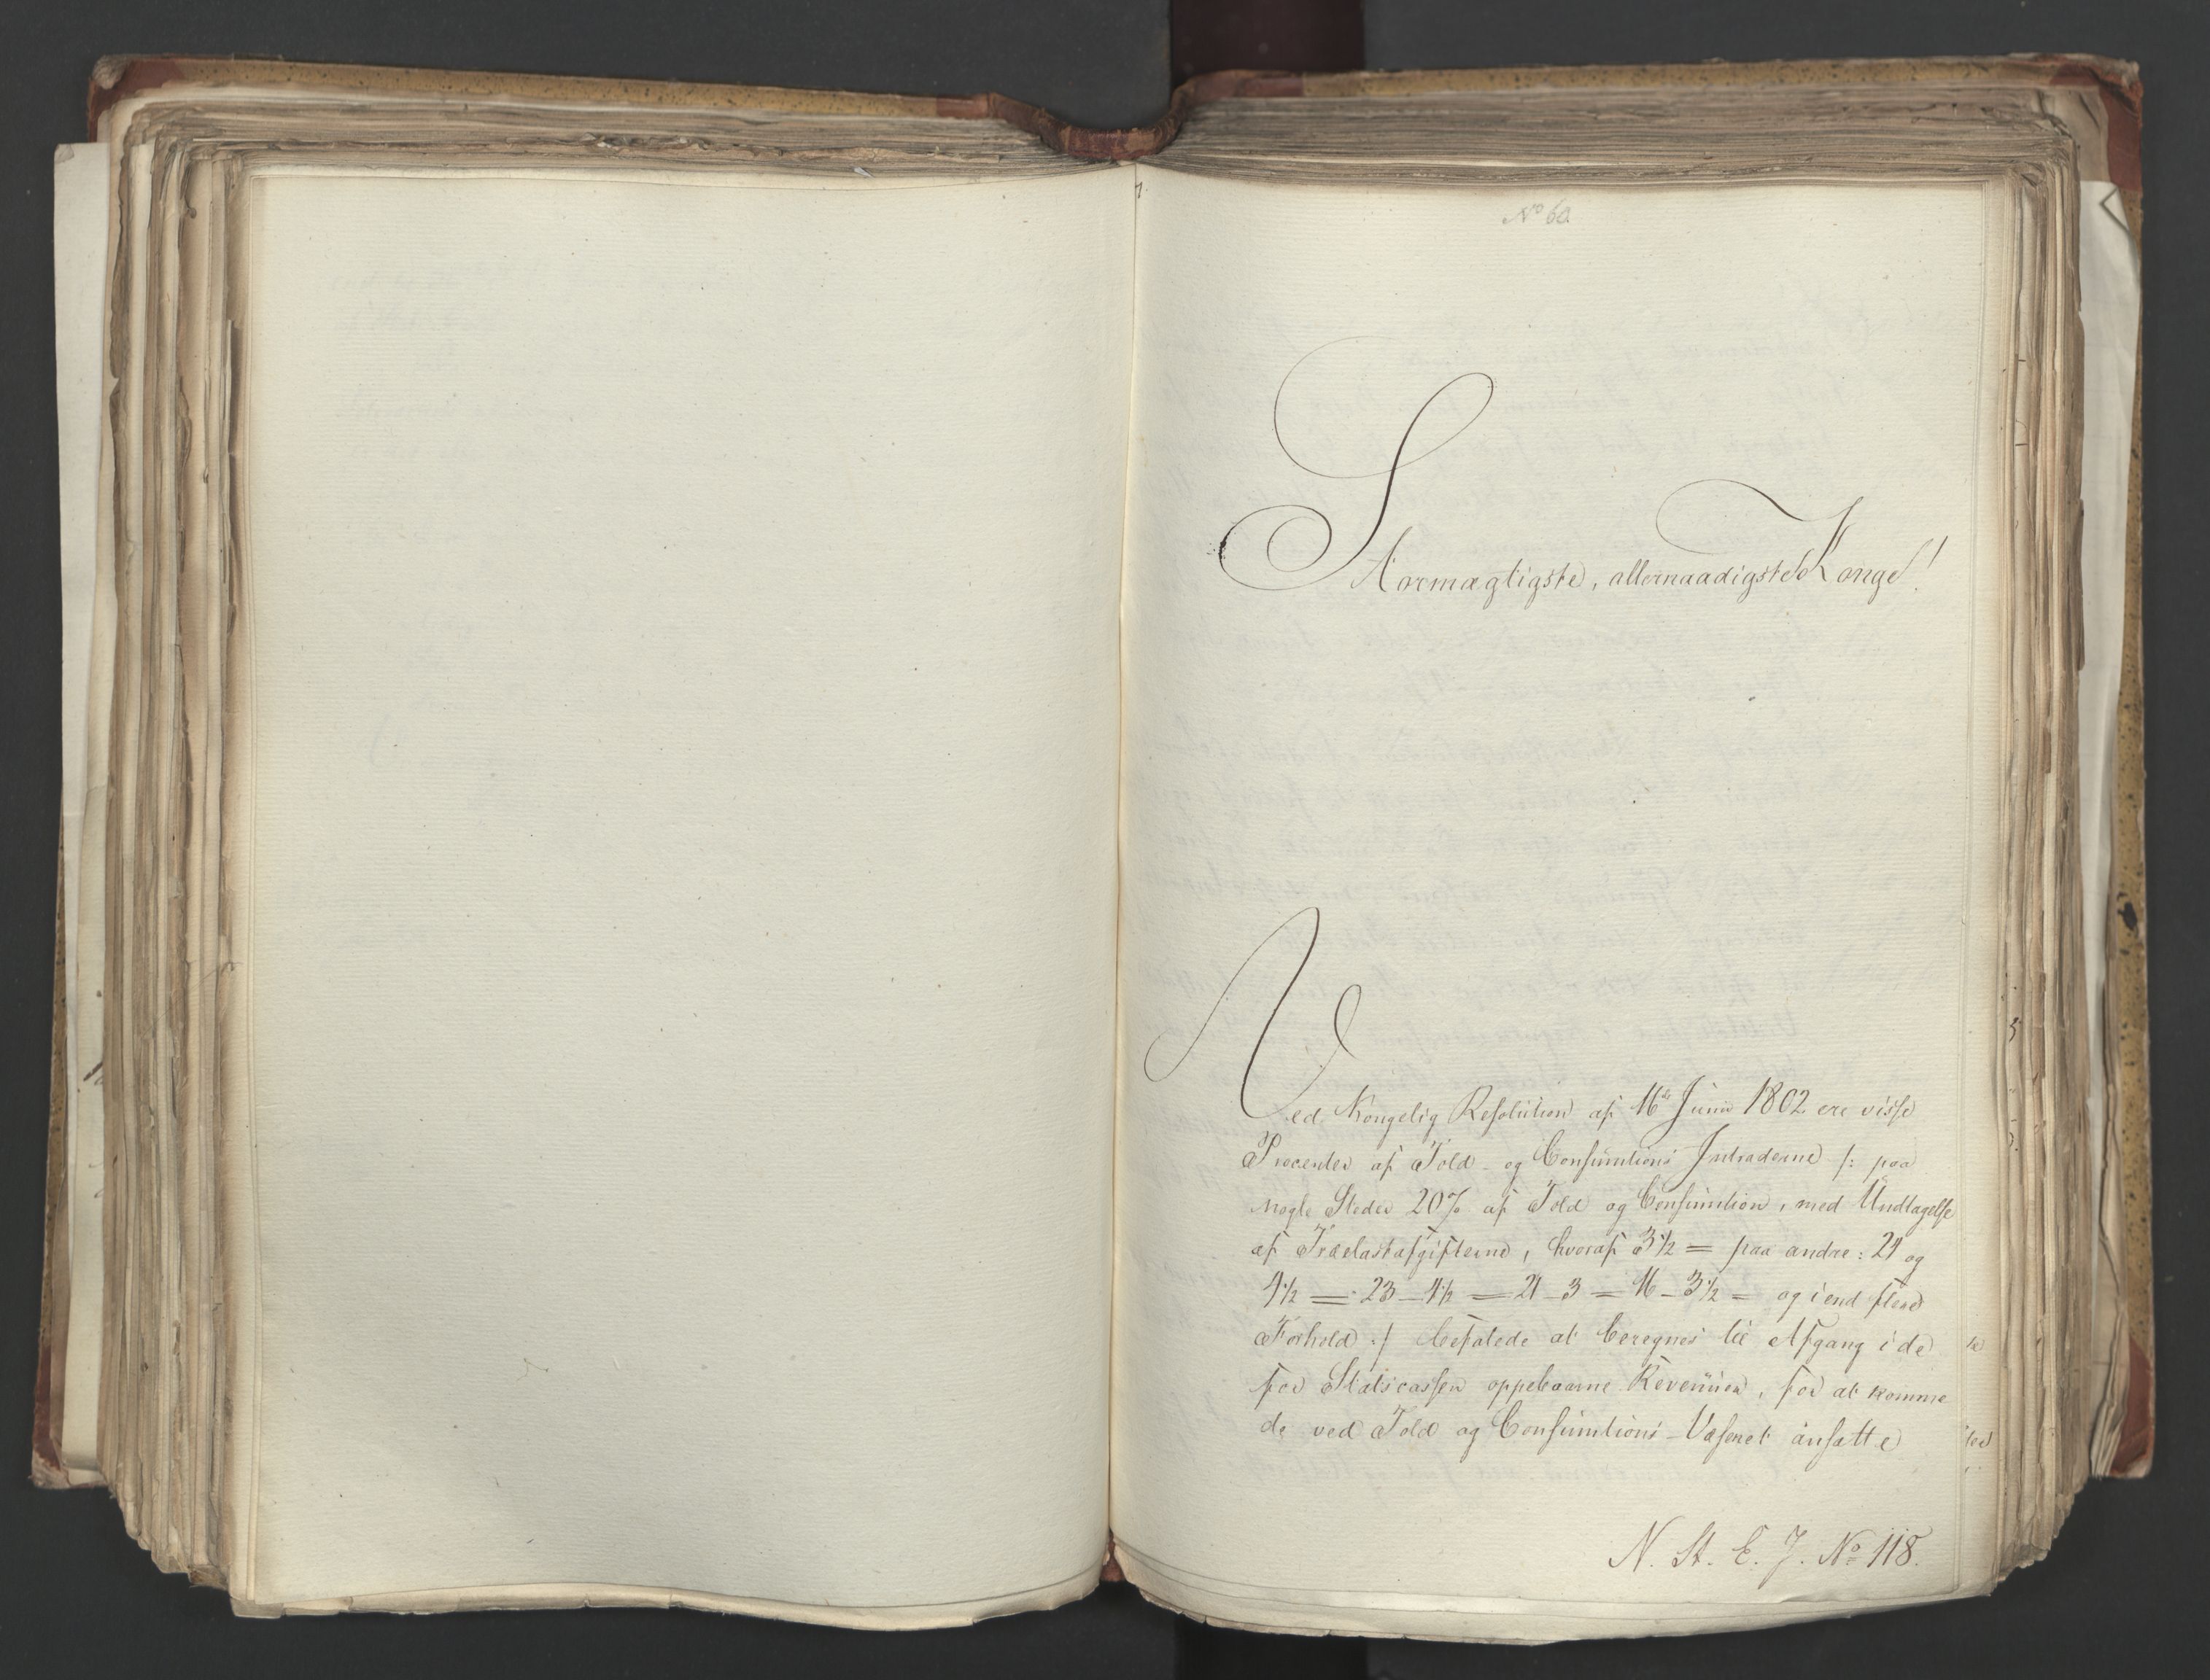 No 60
Stormægtigste, allernaadigste Konge!
Ved Kongelig Resolution af 16de Junii 1802 ere visse
Procenter af Told- og Consumtions Intraderne /: paa
nogle Steder 20% af Told og Consumtion, med Undtagelse
af Trælastafgifterne, hvoraf 3½ = paa andre: 24 og
4½ = 23 – 4½ = 21 – 3 = 16 – 3½ = og i end flere
Forhold :/ befalede at beregnes til Afgang i de
for Statscassen oppebaarne Revenüer, for at komme
de ved Told og Consumtions-Væsenet ansatte
N. St. E. J. No 118.